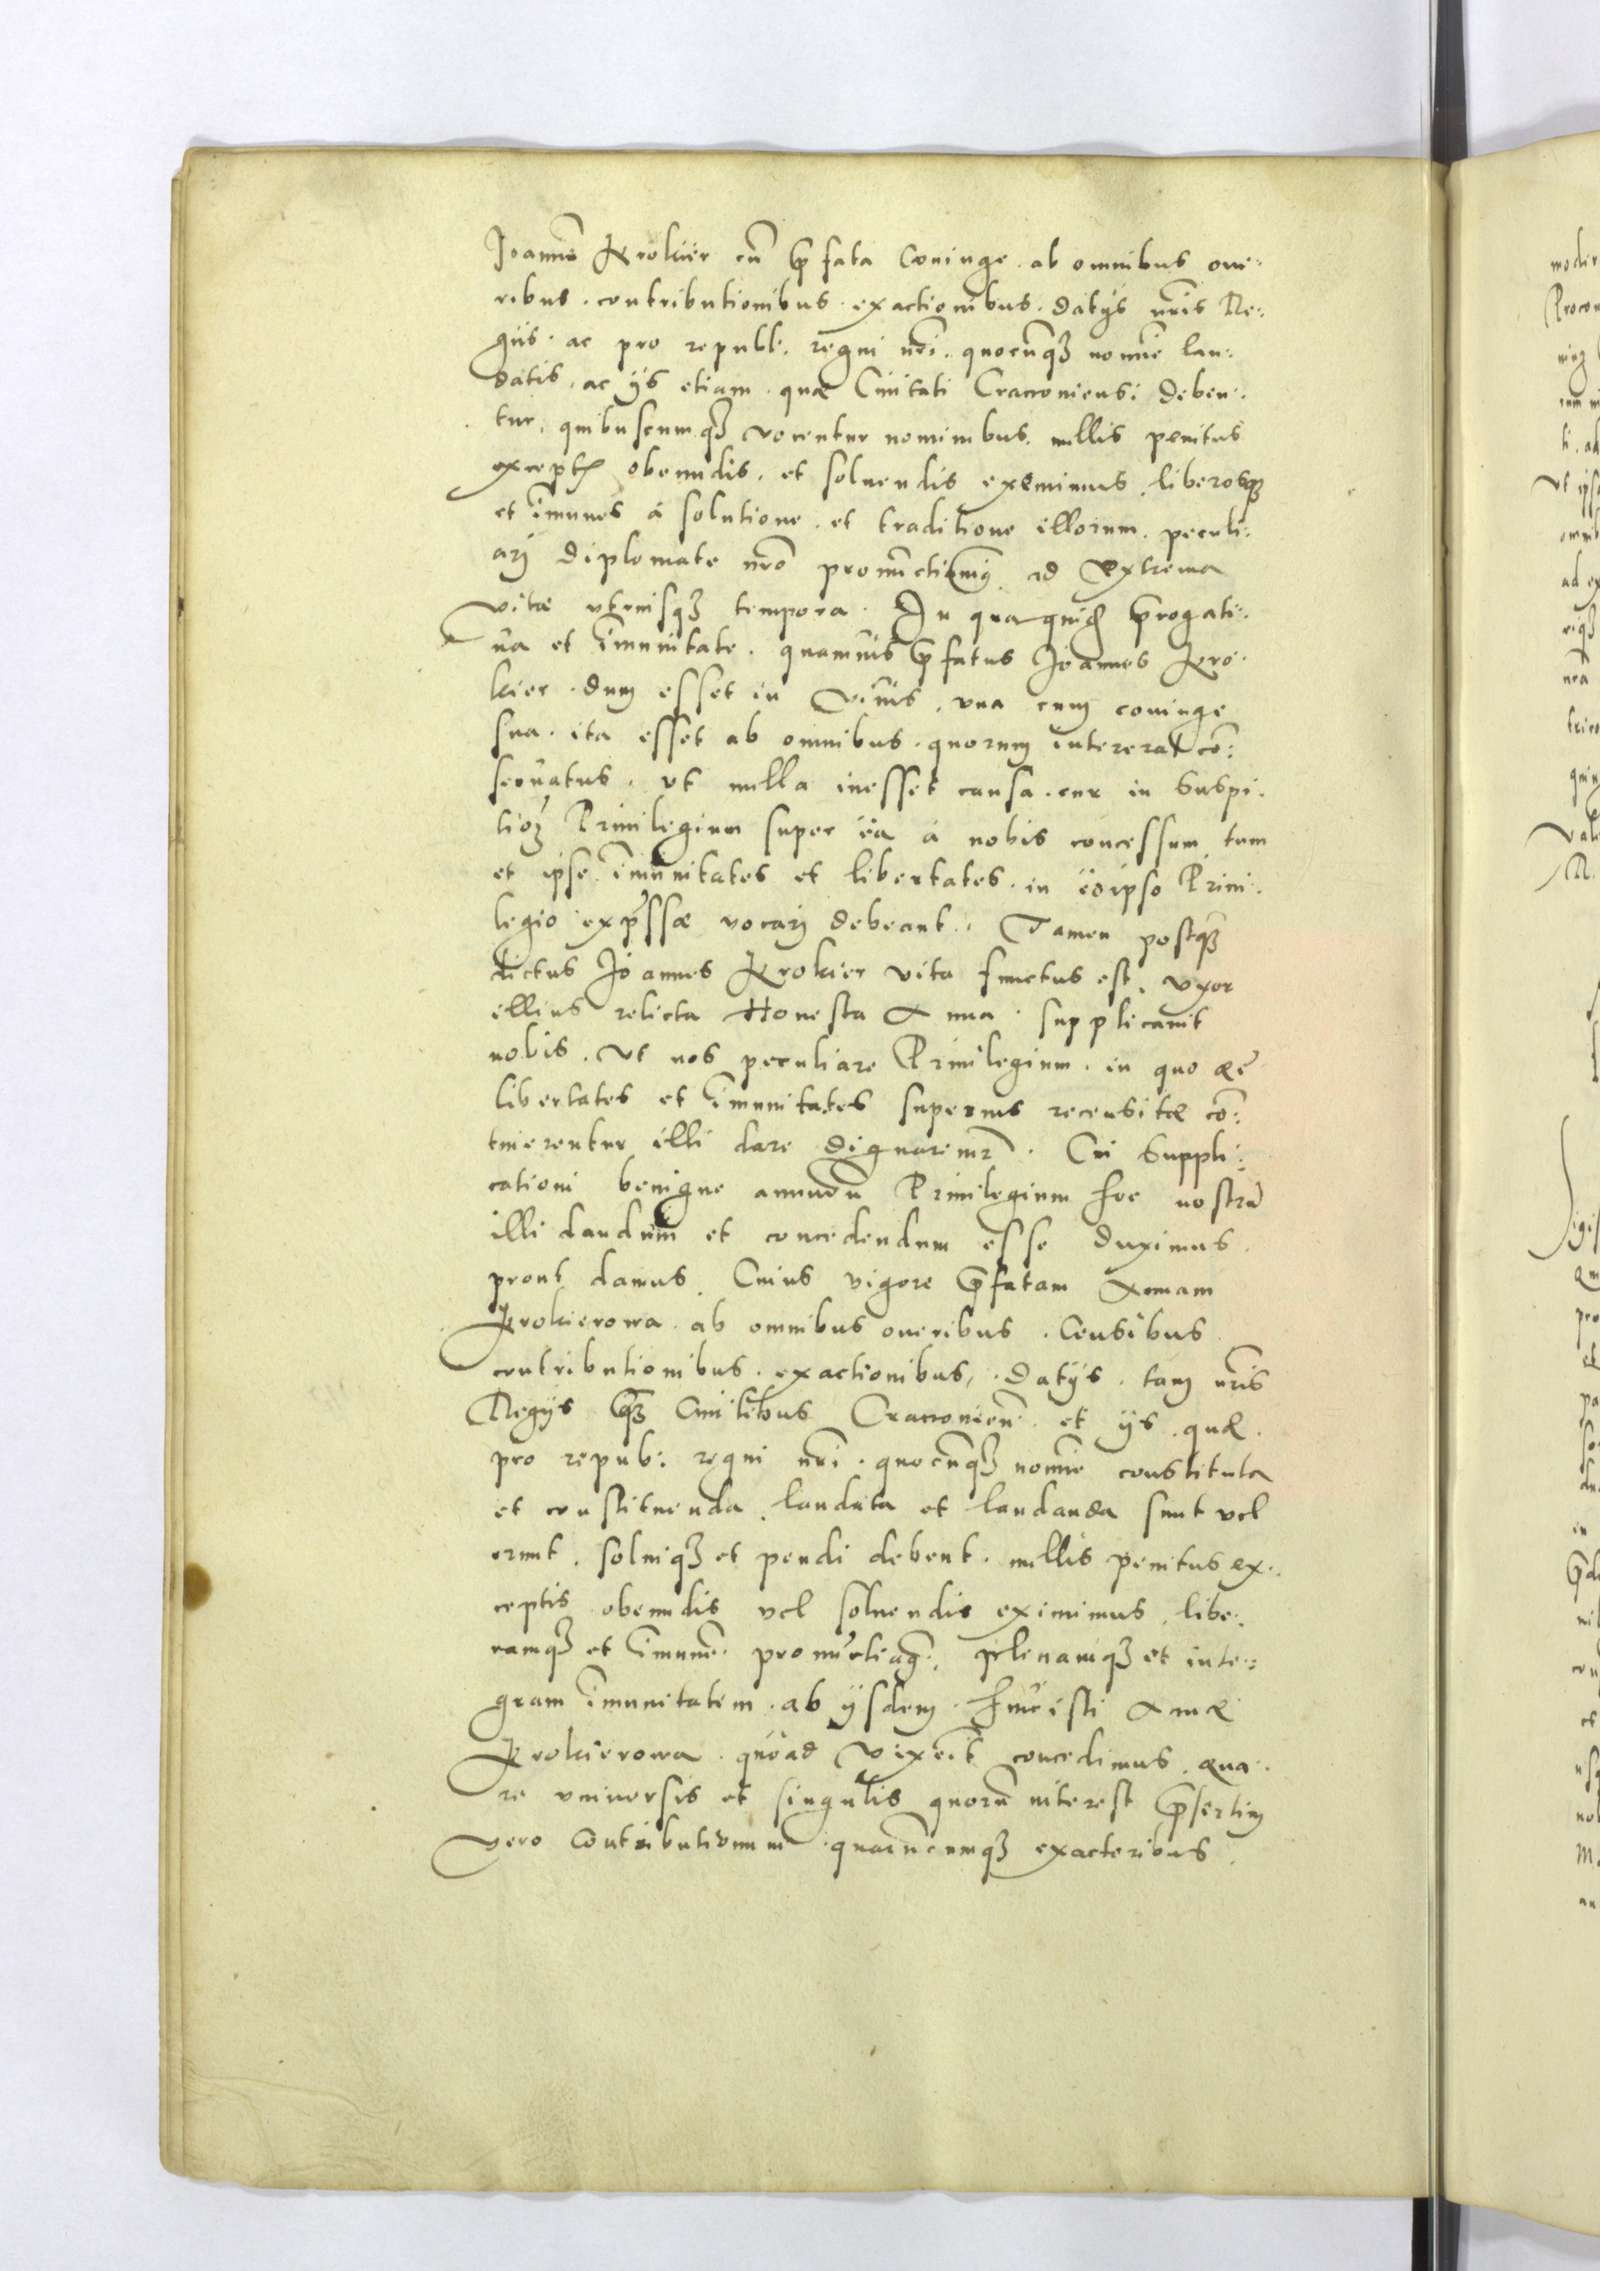 Joannẽ Krokier cũ p̃fata Coniuge . ab omnibus one:
ribus . contributionibus . exactionibus . datijs nr̃is Re:
giis . ac pro republ: regni nr̃i . quocũq₃ nomĩe lau:
datis . ac ijs etiam . quæ Ciuitati Cracouiensi deben:
tur, quibuscumq₃ vocentur nominibus . nullis penitus
exceptꝭ obeundis . et soluendis exemimus . liberosq₃
et im̃unes á solutione . et traditione illorum . peculi:
arj diplomate nr̃o pronũctiauimꝰ ad extrema
vitæ vtriusq₃ tempora . In qua quidẽ p̃rogati:
ua et im̃unitate . quamuis p̃fatus Joannes Kro:
kier . dum esset in viuis . vna cum coniuge
sua . ita esset ab omnibus . quorum intererat cõ:
seruatus . vt nulla inesset causa . cur in suspi:
tioẽ Priuilegium super ea á nobis concessum, tum
et ipsæ im̃unitates et libertates . in eoipso Priui:
legio expressæ vocarj debeant . Tamen postq̃₃
dictus Joannes Krokier vita functus est, vxor
illius relicta Honesta Anna . supplicauit
nobis . Vt nos peculiare Priuilegium . in quo eẽ
libertates et im̃unitates superius recensitæ cõ:
tinerentur illi dare dignaremr̃ . Cui suppli:
cationi benigne annuẽn Priuilegium hoc nostrũ
illi dandum et concedendum esse duximus .
prout damus . Cuius vigore p̃fatam Annam
Krokierowa . ab omnibus oneribus . Censibus
contributionibus . exactionibus, . datijs . tam nr̃is
Regijs q̃₃ Ciuilibus Cracouieñ . et ijs . quæ .
pro repub: regni nr̃i . quocũq₃ nomĩe constituta
et constituenda . laudata et laudanda sunt vel
erunt . soluiq₃ et pendi debent . nullis penitus ex:
ceptis obeundis vel soluendis eximimus . libe:
ramq₃ et im̃unẽ . pronũctiaṁ . Plenamq₃ et inte:
gram im̃unitatem . ab ijsdem . huic isti Annæ
Krokierowa . quoad vixerit concedimus . qua:
re vniuersis et singulis quorũ interest p̃sertim
vero Contributionum quarũcumq₃ exactoribus .